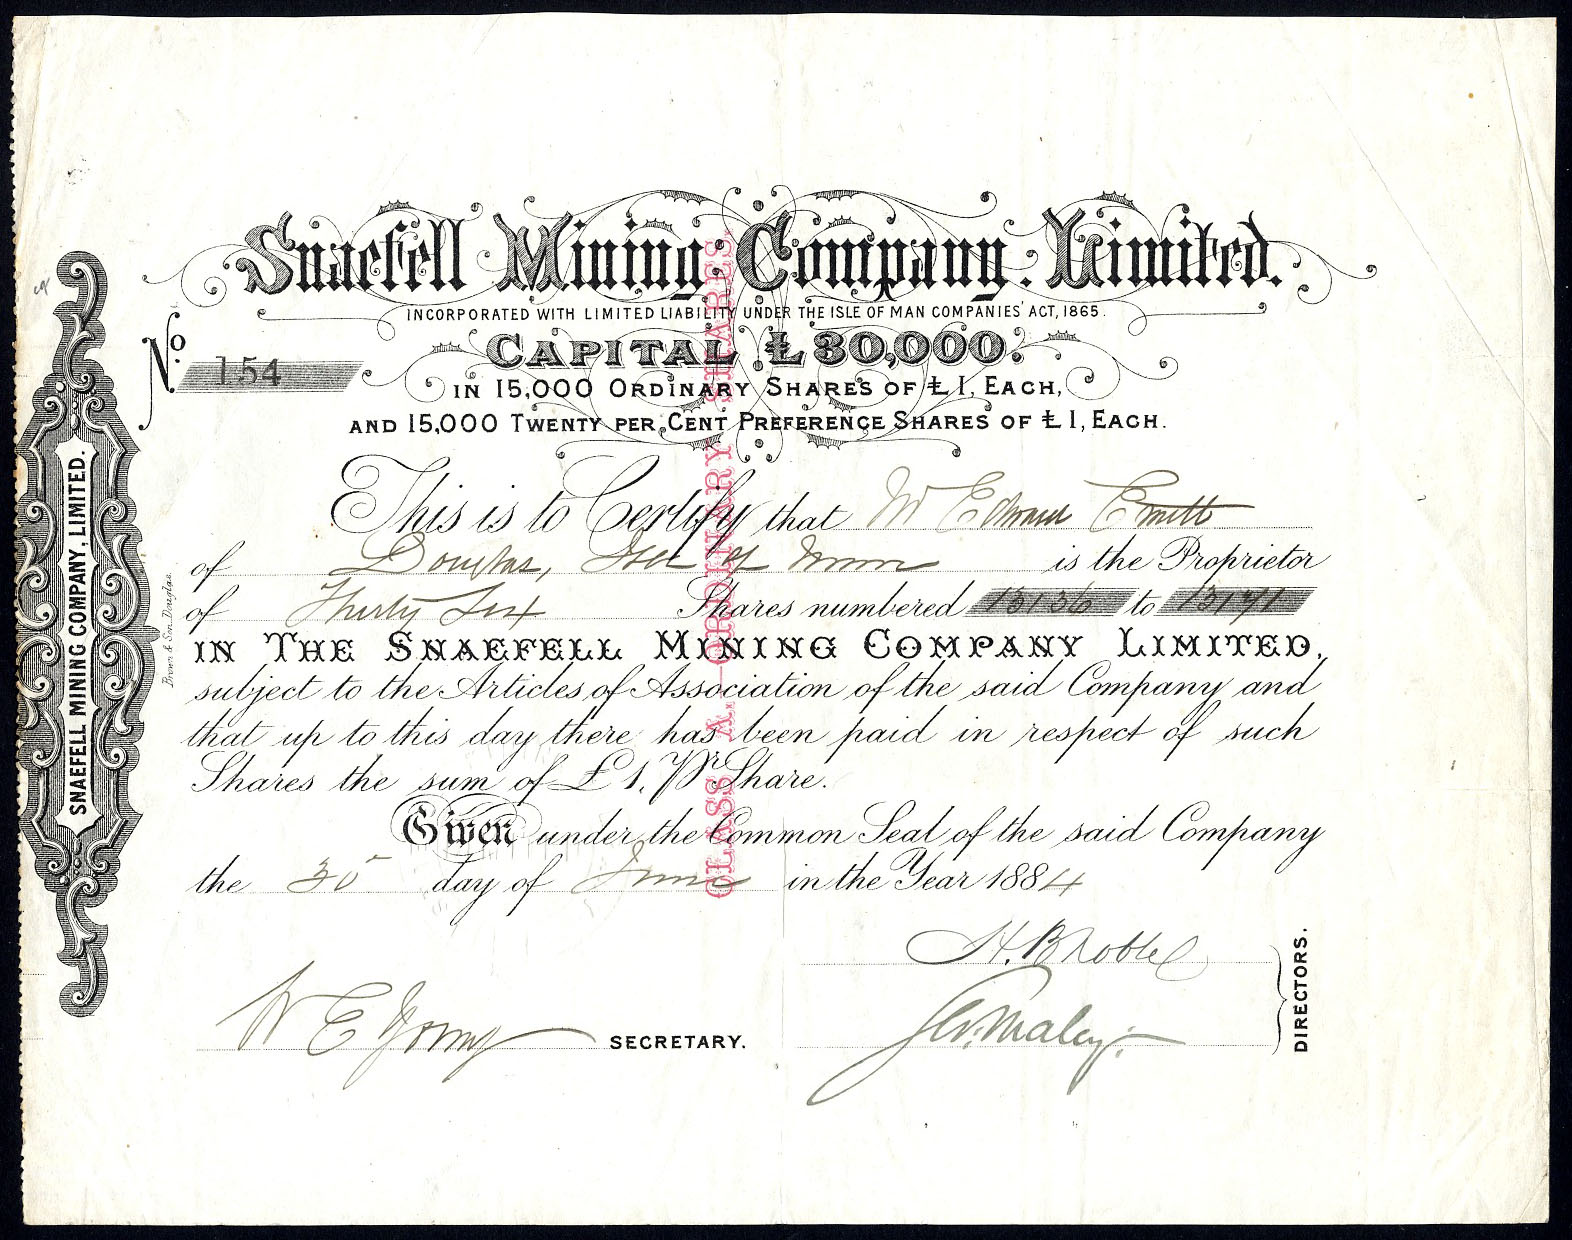 Snaefell Mining Company. Limited.
INCORPORATED WITH LIMITED LIABILITY UNDER THE ISLE OF MAN COMPANIES' ACT, 1865.
No. 154
CAPITAL £30,000.
IN 15,000 ORDINARY SHARES OF £1, EACH,
AND 15,000 TWENTY PER CENT PREFERENCE SHARES OF £1, EACH.
This is to Certify that Mr Edward
of Douglas, Isle of Man is the Proprietor
of Thirty Six Shares numbered 13136 to 13171
IN THE SNAEFELL MINING COMPANY LIMITED,
subject to the Articles of Association of the said Company and
that up to this day there has been paid in respect of such
Shares the sum of £1, Pr Share.
Given under the Common Seal of the said Company
the 30 day of June in the Year 1884
SECRETARY.
DIRECTORS.
SNAEFELL MINING COMPANY, LIMITED.
Brown & Son. Douglas.
CLASS A. ORDINARY SHARES.